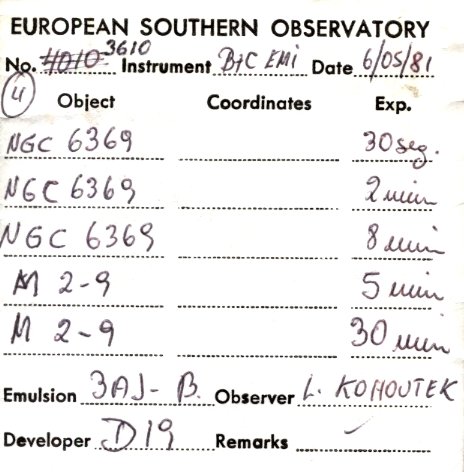 EUROPEAN SOUTHERN OBSERVATORY
No. 4010 3610 Instrument B+C EMI Date 6/05/81
4 Object Coordinates Exp.
NGC 6369 30 seg.
NGC 6369 2 min
NGC 6369 8 min
M 2-9 5 min
M 2-9 30 min
Emulsion 3AJ-B. Observer L. KOHOUTEK
Developer D19 Remarks